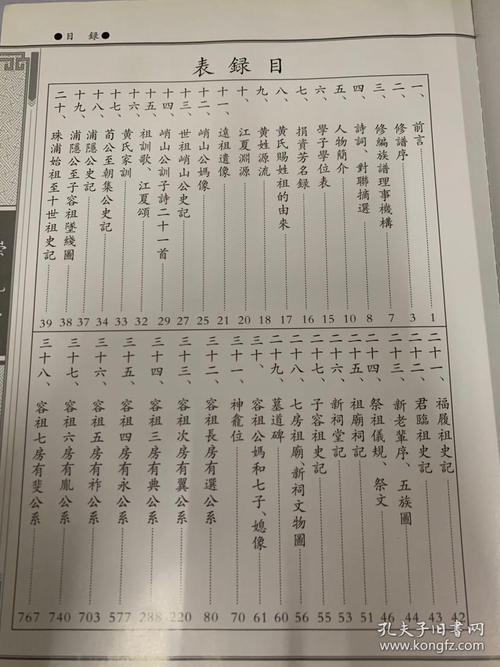 ●目 録●
表録目
一、前言 1
二、修譜序 3
三、修編族譜理事機構 7
四、詩詞、對聯摘選 8
五、人物簡介 10
六、學子學位表 15
七、捐資芳名録 16
八、黄氏賜姓祖的由來 17
九、黄姓源流 18
十、江夏淵源 20
十一、遠祖遺像 21
十二、峭山公媽像 25
十三、世祖峭山公史記 27
十四、峭山公訓子詩二十一首 29
十五、祖訓歌、江夏頌 32
十六、黄氏家訓 33
十七、荀公至朝集公史記 34
十八、浦隱公史記 37
十九、浦隱公至子容祖墜綫圖 38
二十、珠浦始祖至十世祖史記 39
二十一、福履祖史記 42
二十二、君臨祖史記 43
二十三、新老輩序、五族圖 44
二十四、祭祖儀規、祭文 46
二十五、祖廟祠記 51
二十六、新祠堂記 53
二十七、子容祖史記 55
二十八、七房祖廟、新祠文物圖 56
二十九、墓道碑 60
三十、容祖公媽和七子、媳像 61
三十一、神龕位 70
三十二、容祖長房有選公系 80
三十三、容祖次房有翼公系 220
三十四、容祖三房有典公系 288
三十五、容祖四房有永公系 577
三十六、容祖五房有祚公系 703
三十七、容祖六房有胤公系 740
三十八、容祖七房有斐公系 767
孔夫子旧書网